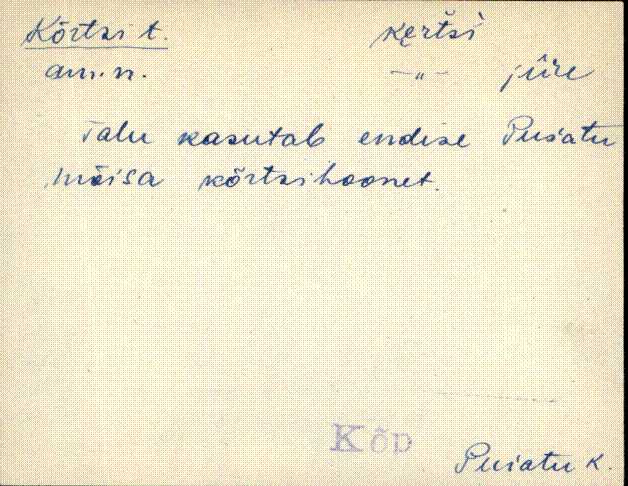 Kõrtsi t. kęŕtsi
am.n. –„– jüŕe
Talu kasutab endise Puiatu
mõisa kõrtsihoonet.
Kõp
Puiatu k.